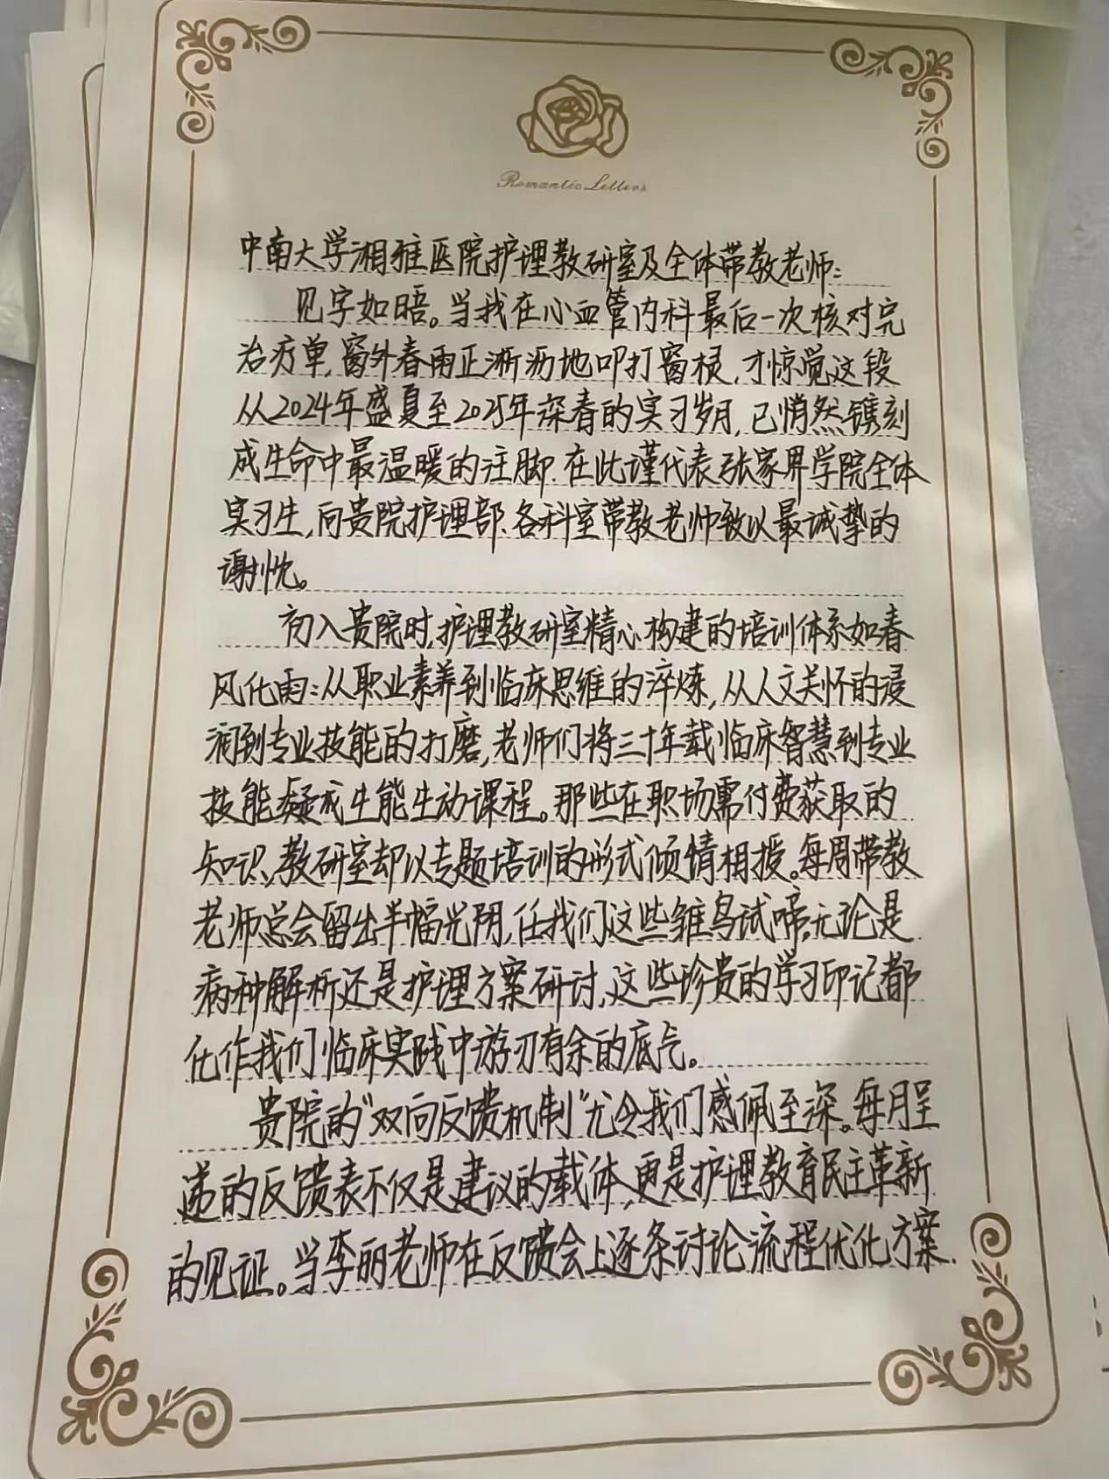 Romantic Letters
中南大学湘雅医院护理教研室及全体带教老师:
见字如晤。当我在心血管内科最后一次核对完
治疗单,窗外春雨正淅沥地叩打窗棂,才惊觉这段
从2024年盛夏至2025年深春的实习岁月,已悄然镌刻
成生命中最温暖的注脚.在此谨代表张家界学院全体
实习生,向贵院护理部.各科室带教老师致以最诚挚的
谢忱。
初入贵院时,护理教研室精心构建的培训体系如春
风化雨:从职业素养到临床思维的淬炼,从人文关怀的浸
润到专业技能的打磨,老师们将三十年载临床智慧到专业
技能凝成生能生动课程。那些在职场需付费获取的
知识,教研室却以专题培训的形式倾情相授。每周带教
老师总会留出半幅光阴,任我们这些雏鸟试啼,无论是
病种解析还是护理方案研讨,这些珍贵的学习印记都
化作我们临床实践中游刃有余的底气。
贵院的"双向反馈机制"尤令我们感佩至深。每月呈
递的反馈表不仅是建议的载体,更是护理教育民主革新
的见证。当李丽老师在反馈会上逐条讨论流程优化方案.